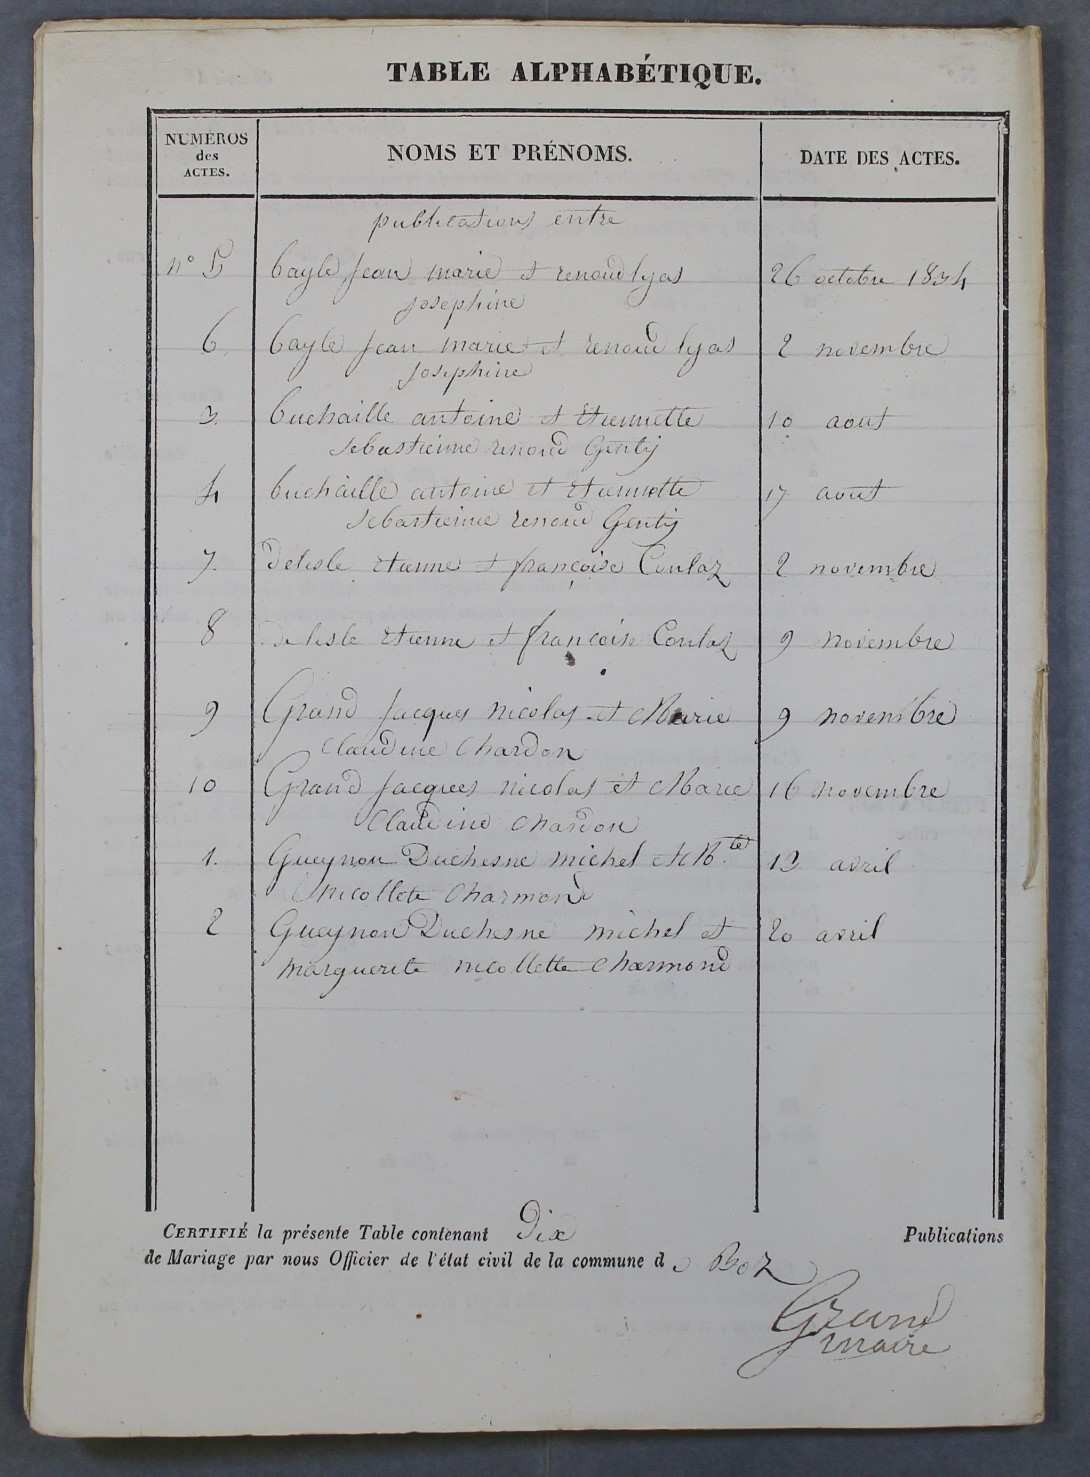 TABLE ALPHABÉTIQUE.
NUMÉROS des ACTES.
NOMS ET PRÉNOMS.
DATE DES ACTES.
publications entre
n° 5 Cayle Jean marie et renoud lyas 26 octobre 1834
josephine
6 Cayle Jean marie et renoud lyas 2 novembre
Josephine
3. Cuchaille antoine et Etiennette 10 aout
sebastienne renoud Genty
4 Cuchaille antoine et Etiennette 17 aout
sebastienne renoud Genty
7. Delisle Etienne et françoise Coulaz 2 novembre
8 Delisle Etienne et françoise Coulaz 9 novembre
9 Grand Jacques nicolas et Marie 9 novembre
Claudine Chardon
10 Grand Jacques nicolas et Marie 16 novembre
Claudine Chardon
1. Gueynon Duchesne michel et Mte 13 avril
nicollete Charmond
2 Gueynon Duchesne michel et 20 avril
marguerite nicollette Charmond
CERTIFIÉ la présente Table contenant Dix Publications
de Mariage par nous Officier de l'état civil de la commune de Boz
Grand
maire